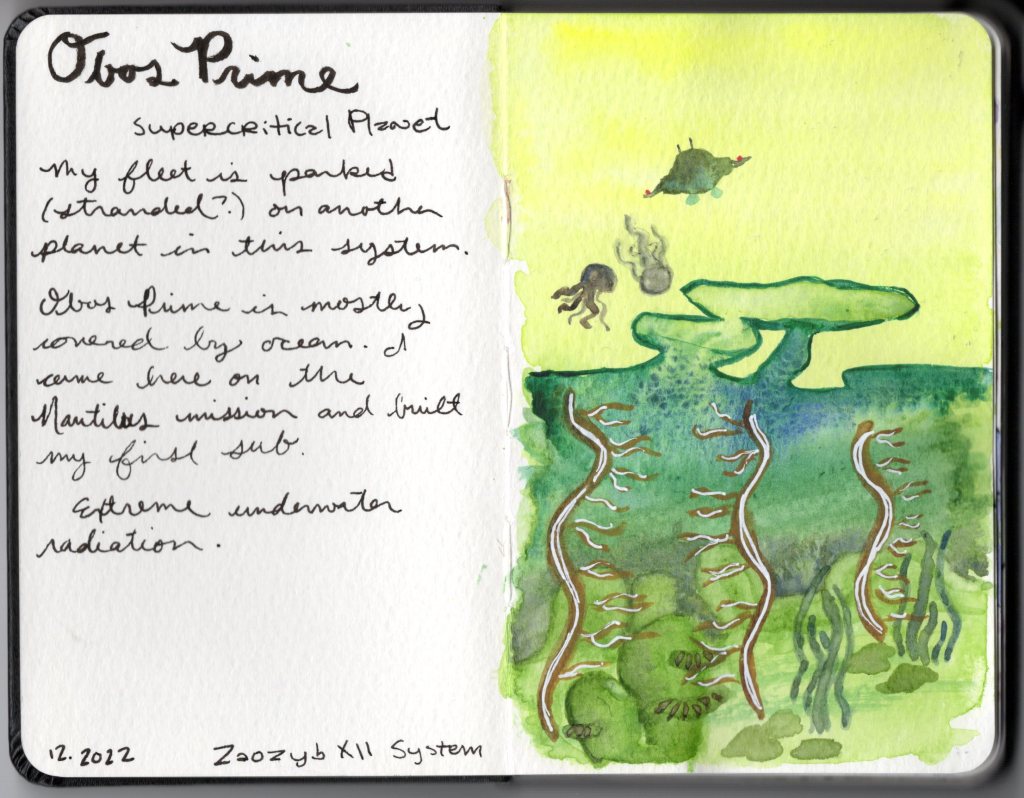 Obos Prime
Supercritical Planet
My fleet is parked
(stranded?) on another
planet in this system.
Obos Prime is mostly
covered by ocean. I
came here on the
Nautilus mission and built
my first sub.
Extreme underwater
radiation.
12.2022 Zaozyb XII System